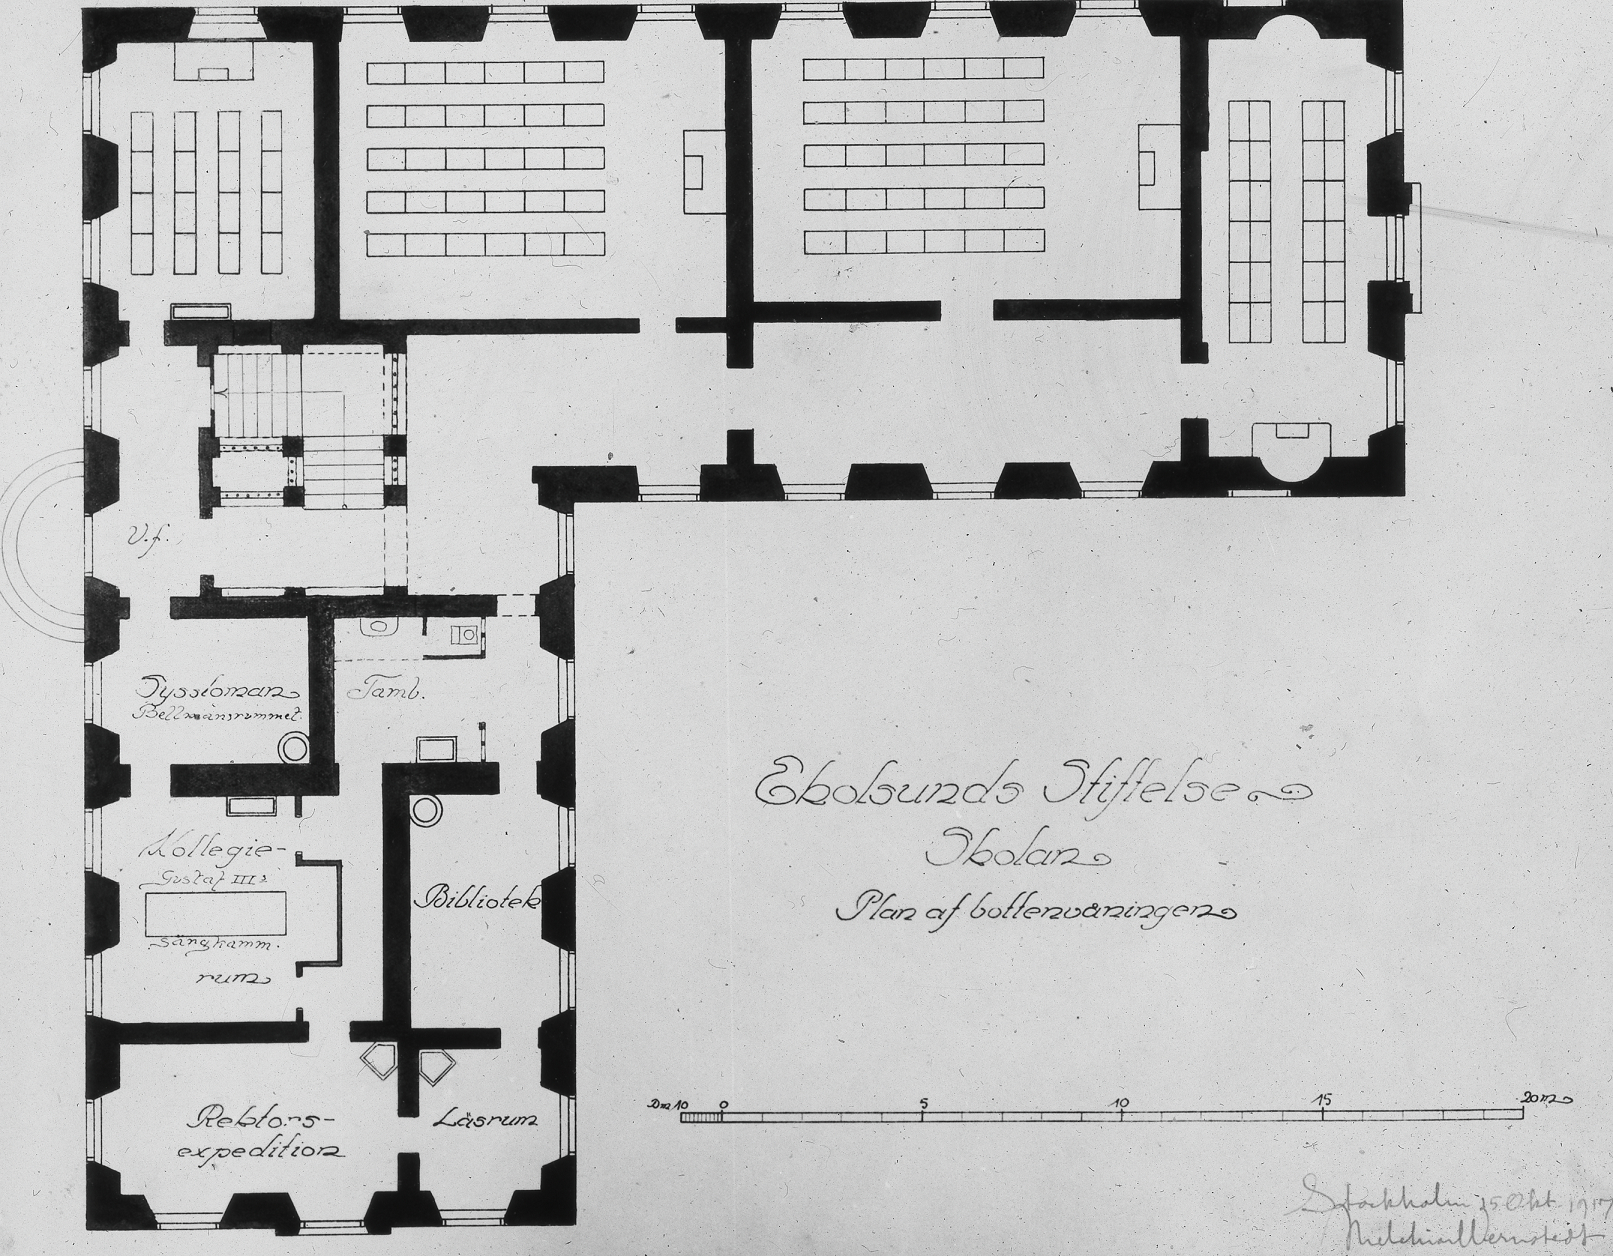 V.f.
Syssloman
Bellmansrummet.
Tamb.
Kollegie-
Gustaf III:s
sängkamm.
rum
Bibliotek
Ekolsunds Stiftelse
Skolan
Plan af bottenvåningen
Rektors-
expedition
Läsrum
Dm 10 0 5 10 15 20 m
Stockholm 25 Okt 1917
Melchior Wernstedt